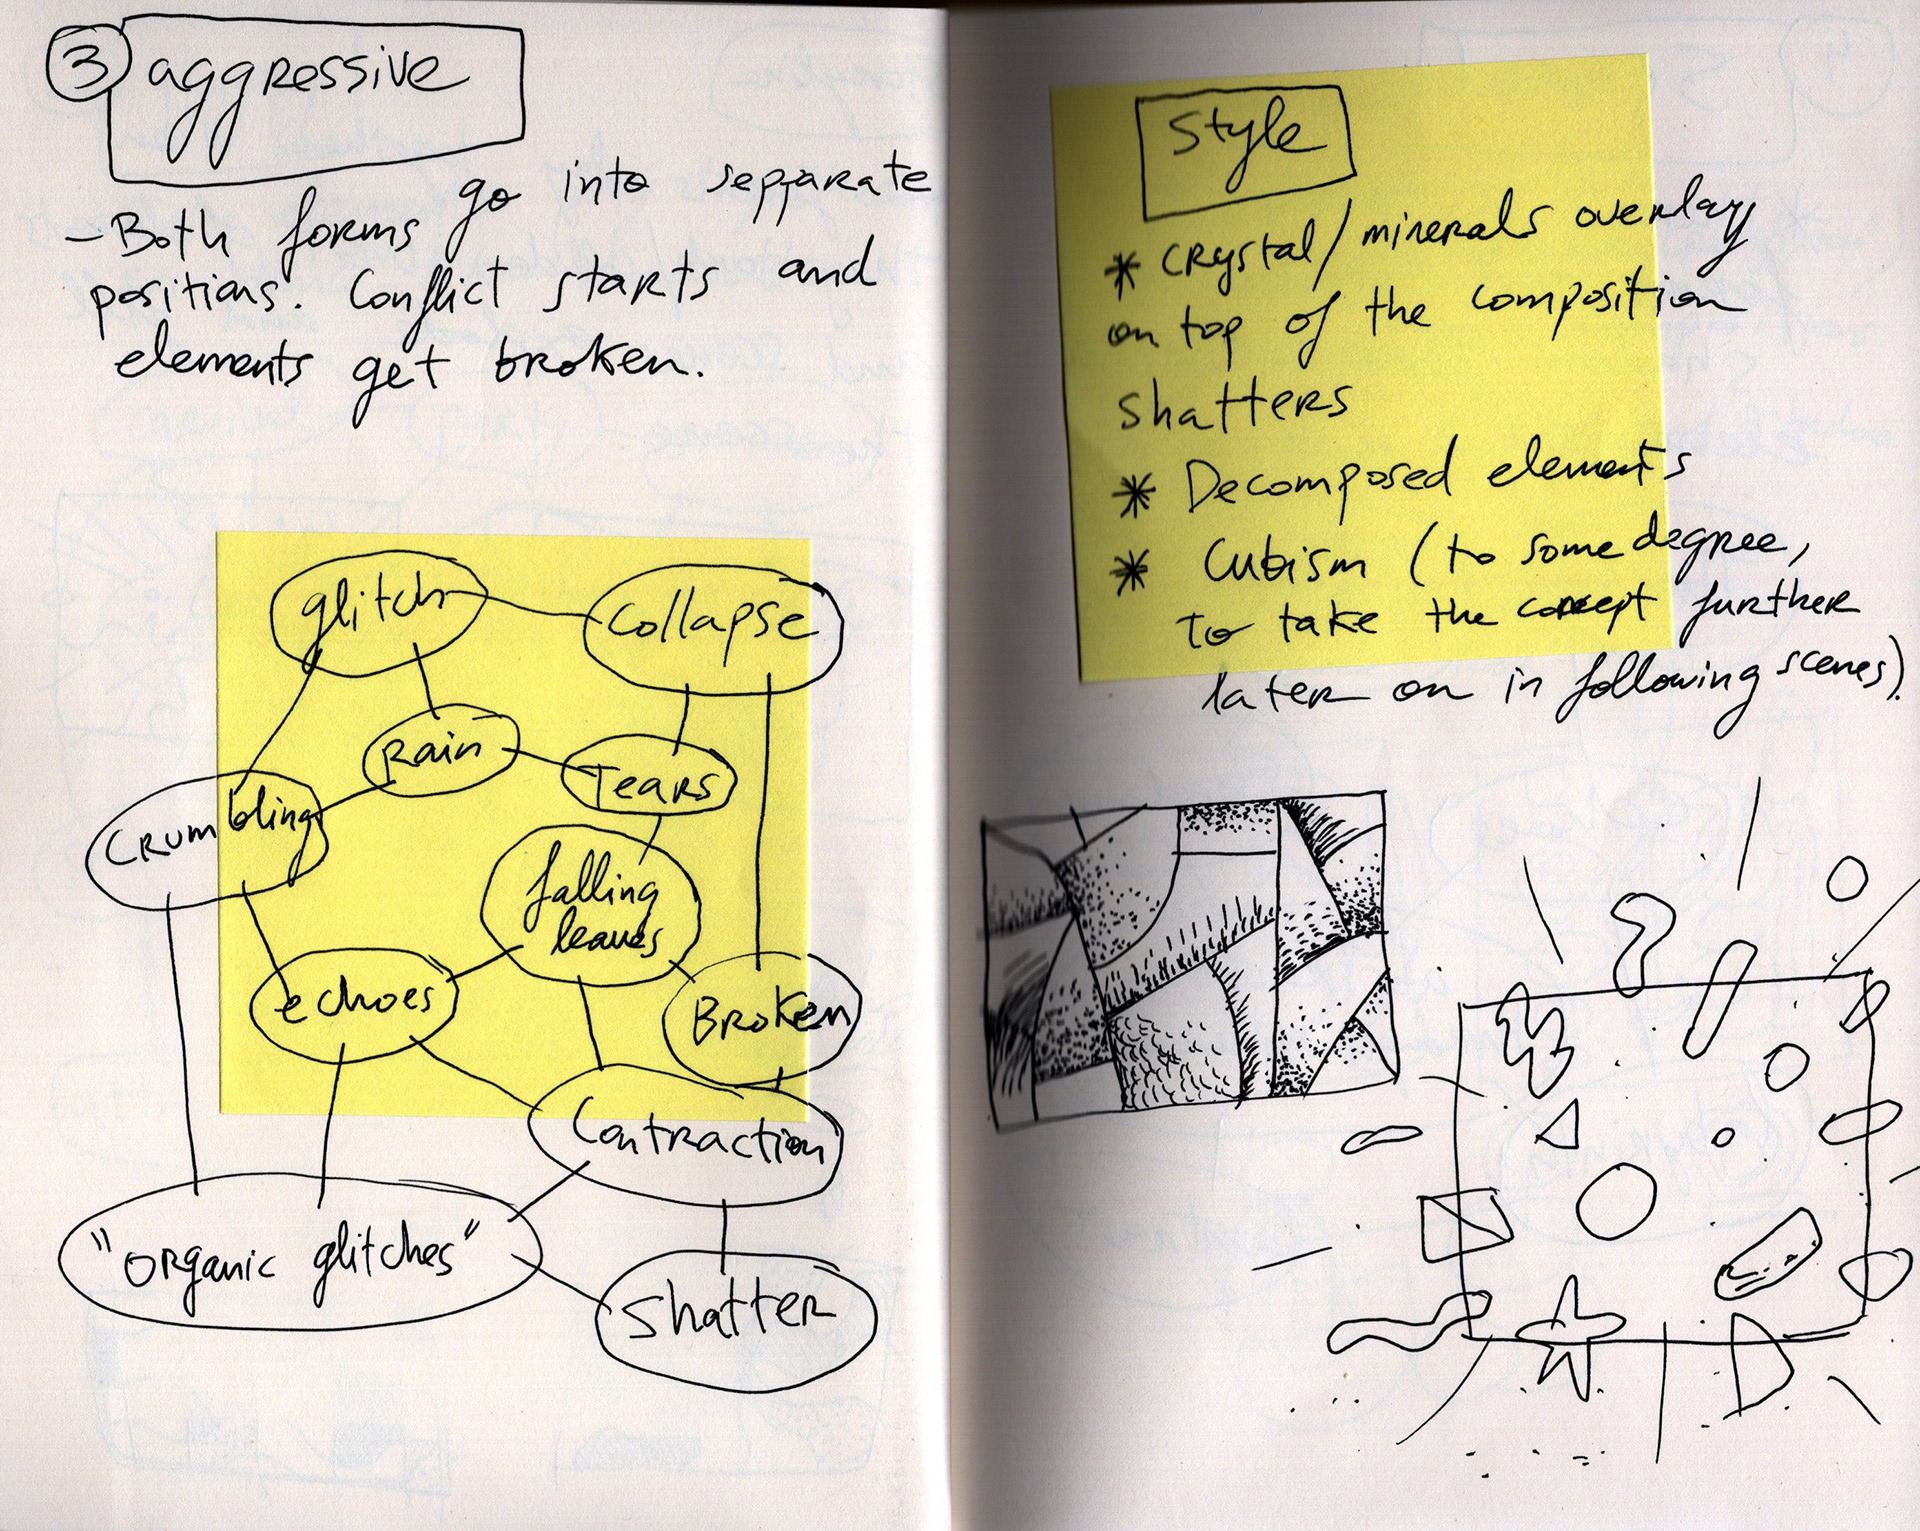 3 aggressive
- Both forms go into separate
positions. Conflict starts and
elements get broken.
glitch
collapse
Rain
Tears
Crumbling
falling
leaves
echoes
Broken
Contraction
"organic glitches"
shatter
Style
* crystal/minerals overlay
on top of the composition
shatters
* Decomposed elements
* Cubism (to some degree,
to take the concept further
later on in following scenes).